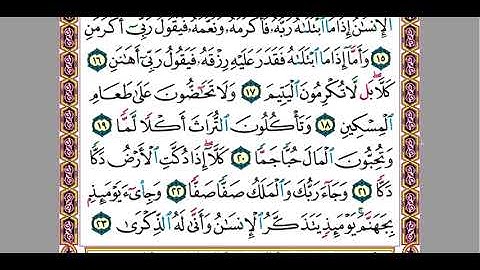 ٱلْإِنسَٰنُ إِذَا مَا ٱبْتَلَىٰهُ رَبُّهُۥ فَأَكْرَمَهُۥ وَنَعَّمَهُۥ فَيَقُولُ رَبِّىٓ أَكْرَمَنِ
١٥ وَأَمَّآ إِذَا مَا ٱبْتَلَىٰهُ فَقَدَرَ عَلَيْهِ رِزْقَهُۥ فَيَقُولُ رَبِّىٓ أَهَٰنَنِ ١٦
كَلَّا بَل لَّا تُكْرِمُونَ ٱلْيَتِيمَ ١٧ وَلَا تَحَٰٓضُّونَ عَلَىٰ طَعَامِ
ٱلْمِسْكِينِ ١٨ وَتَأْكُلُونَ ٱلتُّرَاثَ أَكْلًا لَّمًّا ١٩
وَتُحِبُّونَ ٱلْمَالَ حُبًّا جَمًّا ٢٠ كَلَّآ إِذَا دُكَّتِ ٱلْأَرْضُ دَكًّا
دَكًّا ٢١ وَجَآءَ رَبُّكَ وَٱلْمَلَكُ صَفًّا صَفًّا ٢٢ وَجِا۟ىٓءَ يَوْمَئِذٍۭ
بِجَهَنَّمَ ۚ يَوْمَئِذٍ يَتَذَكَّرُ ٱلْإِنسَٰنُ وَأَنَّىٰ لَهُ ٱلذِّكْرَىٰ ٢٣